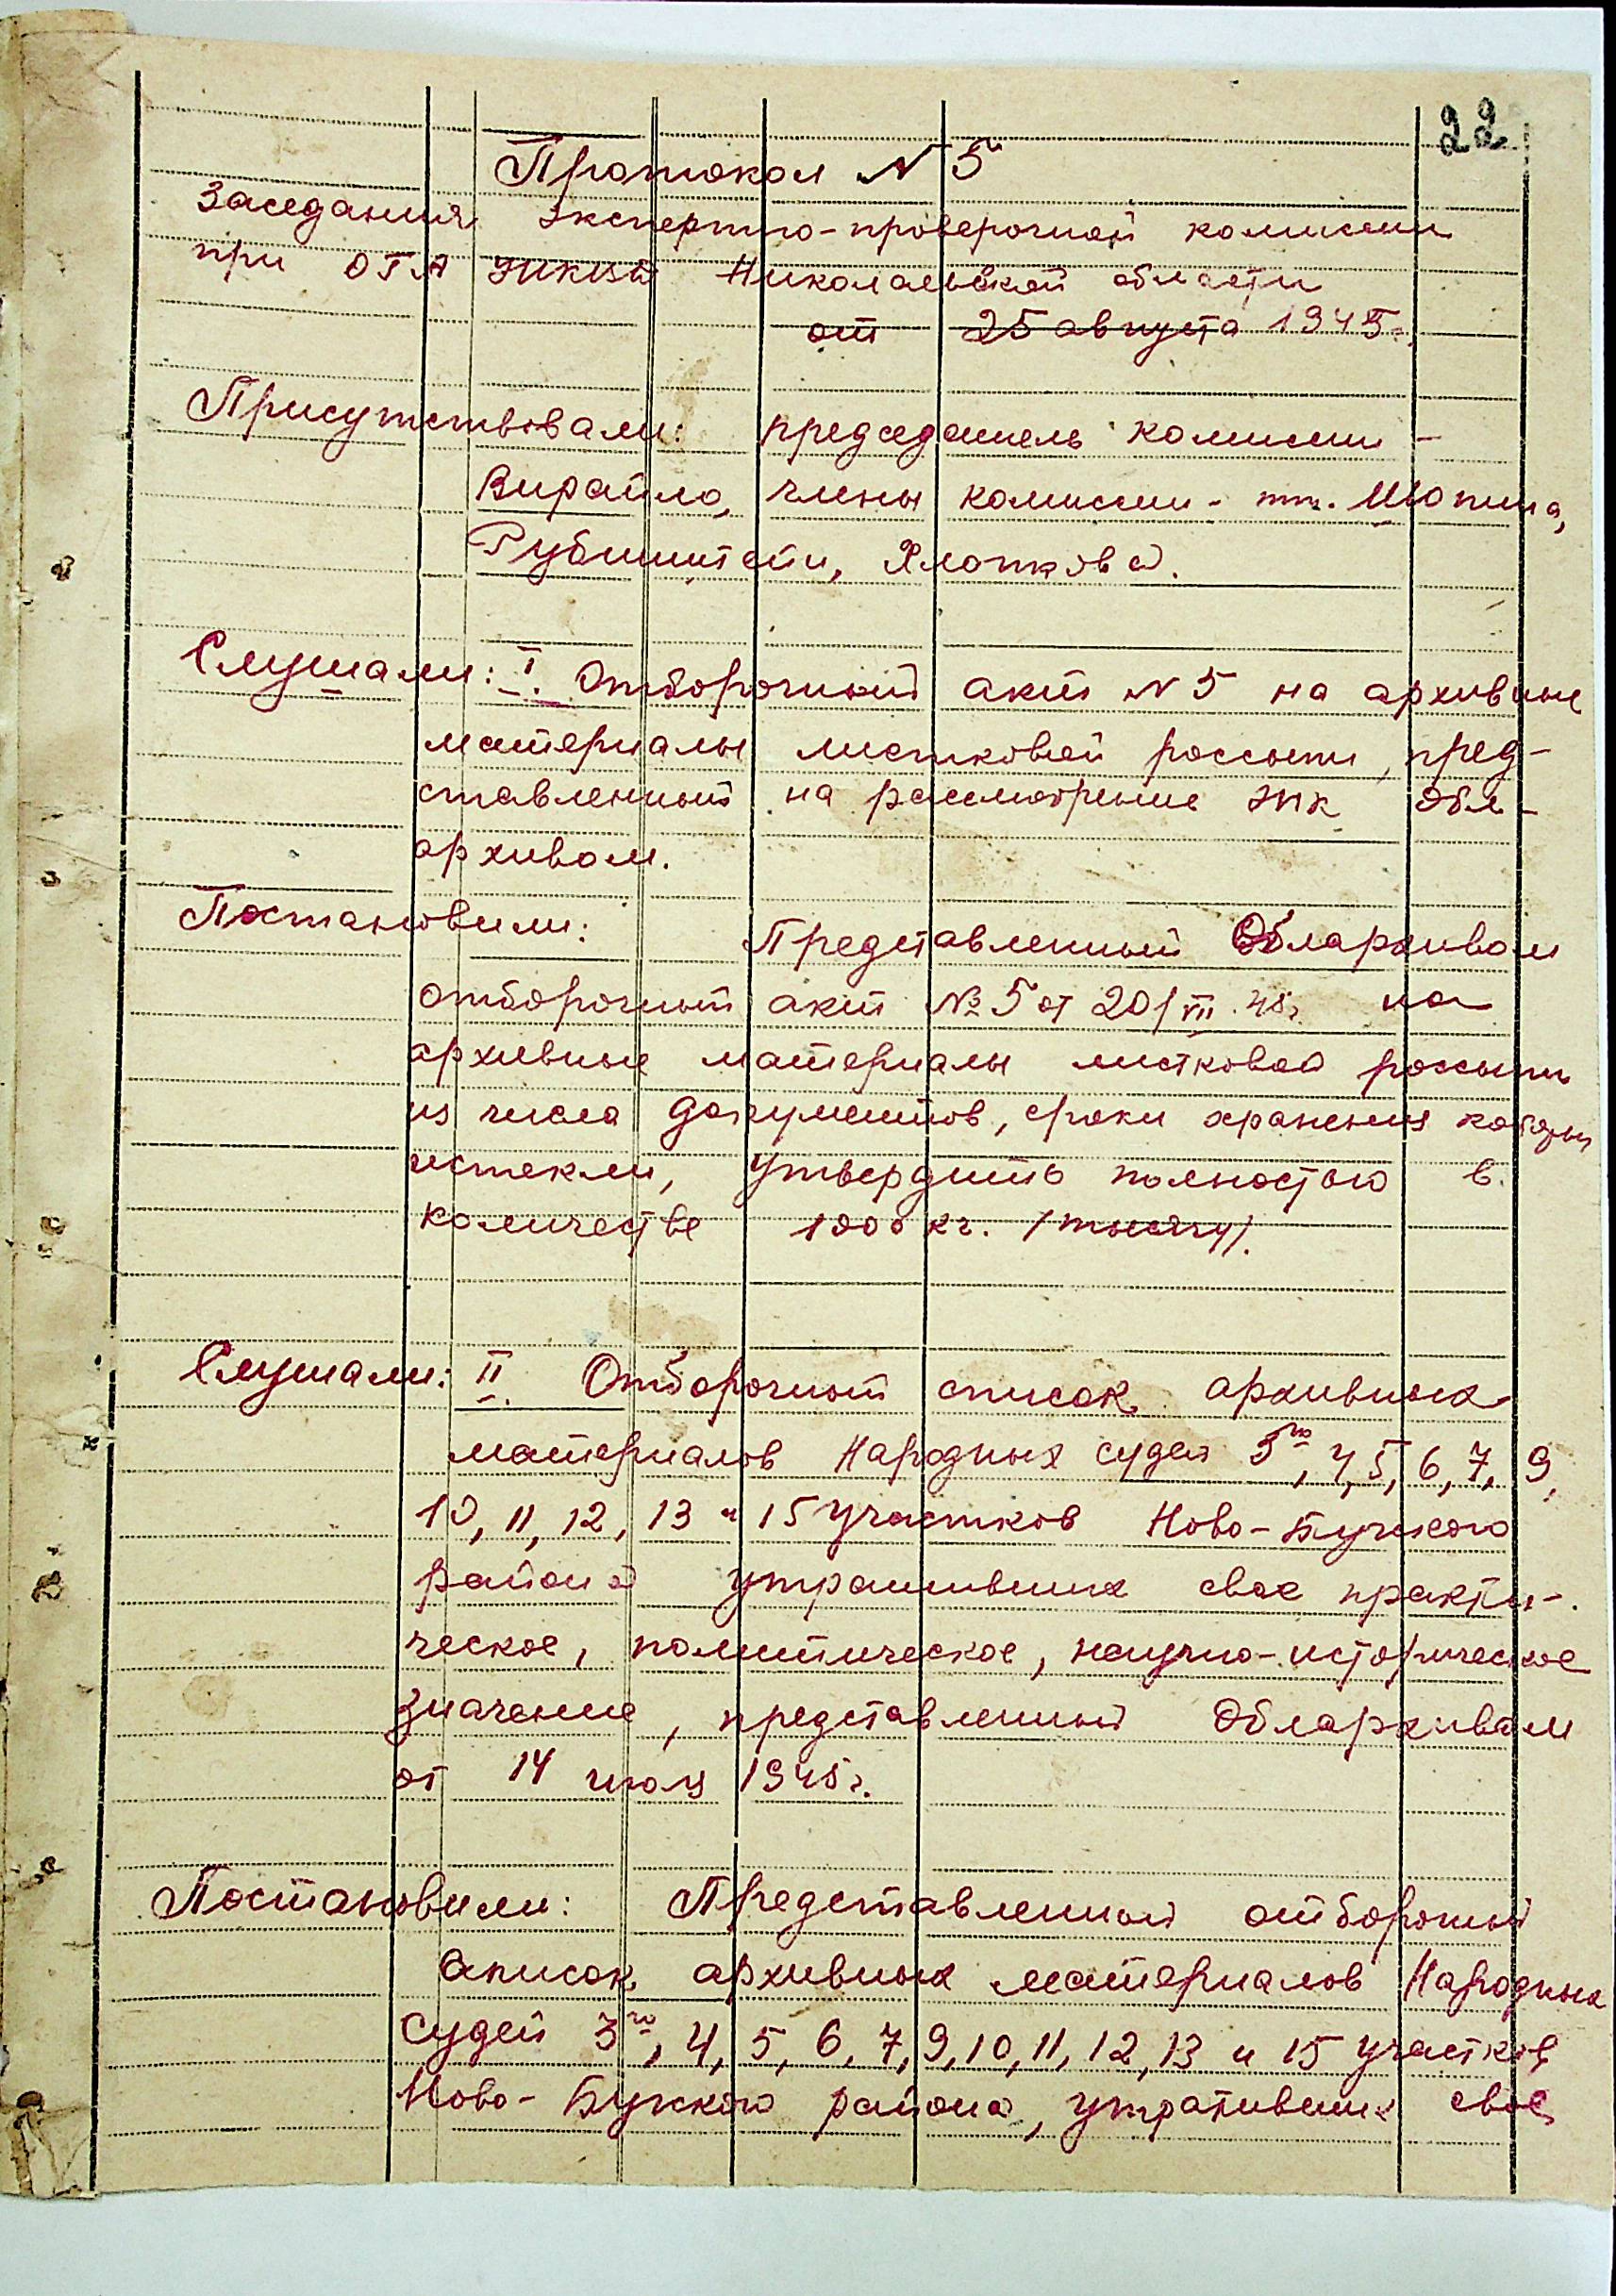 22
Протокол N 5
Заседания экспертно-проверочной комиссии
при ОГА УНКВД Николаевской области
от 25 августа 1945г.
Присутствовали: председатель комиссии -
Вирайло, члены комиссии - тт. Шопина,
Рубинштейн, Хлопкова.
Слушали: I. Отборочный акт N 5 на архивные
материалы листковой россыпи, пред-
ставленный на рассмотрение ЭПК Обл-
архивом.
Постановили: Представленный Облархивом
отборочный акт № 5 от 20/VII.45г. на
архивные материалы листковой россыпи
из числа документов, сроки хранения которых
истекли, утвердить полностью в
количестве 1000 кг. /тысячу/.
Слушали: II. Отборочный список архивных
материалов Народных судей 3го, 4, 5, 6, 7, 9,
10, 11, 12, 13 и 15 участков Ново-Бугского
района утративших свое практи-
ческое, политическое, научно-историческое
значение, представленный Облархивом
от 14 июля 1945г.
Постановили: Представленный отборочный
список архивных материалов Народных
судей 3го, 4, 5, 6, 7, 9, 10, 11, 12, 13 и 15 участков
Ново-Бугского района, утративших свое